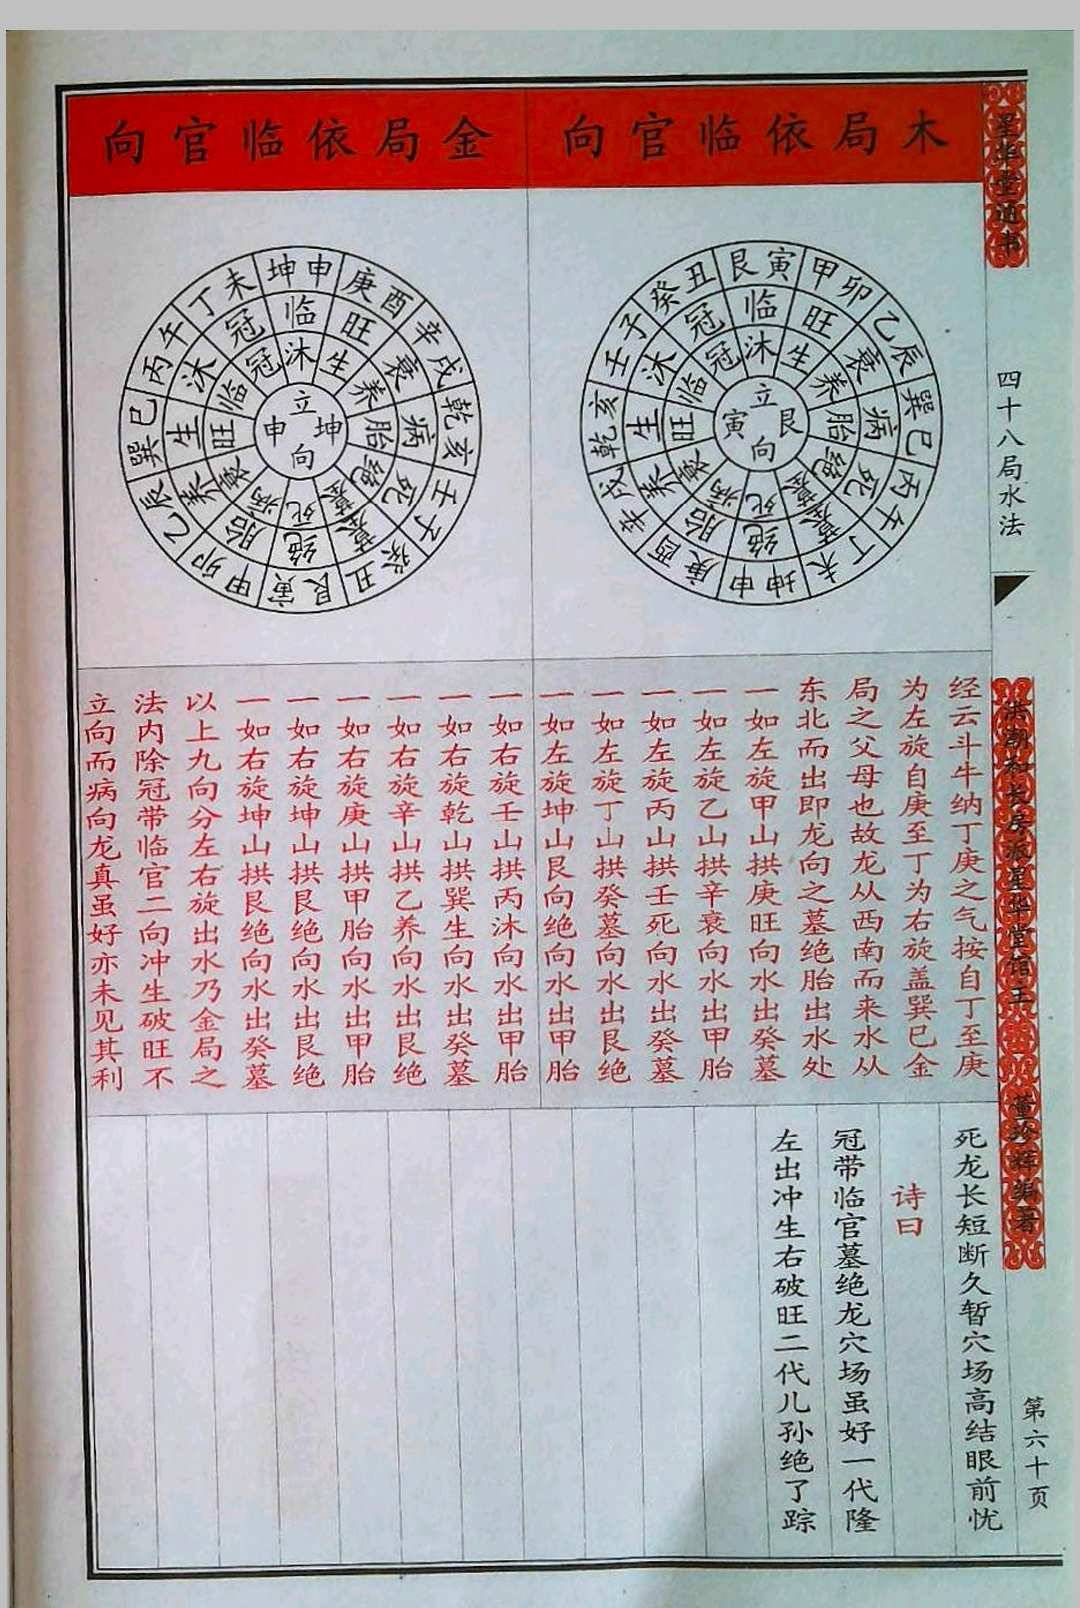 星华堂通书
四十八局水法
洪潮和长房派星华堂馆主
董珍辉编著
第六十页
木局依临官向
金局依临官向
艮寅
甲卯
乙辰
巽巳
丙午
丁未
坤申
庚酉
辛戌
乾亥
壬子
癸丑
临
旺
衰
病
死
墓
绝
胎
养
生
沐
冠
沐
生
养
胎
绝
墓
死
病
衰
旺
临
冠
立
艮
向
寅
坤申
庚酉
辛戌
乾亥
壬子
癸丑
艮寅
甲卯
乙辰
巽巳
丙午
丁未
临
旺
衰
病
死
墓
绝
胎
养
生
沐
冠
沐
生
养
胎
绝
墓
死
病
衰
旺
临
冠
立
坤
向
申
经云斗牛纳丁庚之气按自丁至庚
为左旋自庚至丁为右旋盖巽巳金
局之父母也故龙从西南而来水从
东北而出即龙向之墓绝胎出水处
一如左旋甲山拱庚旺向水出癸墓
一如左旋乙山拱辛衰向水出甲胎
一如左旋丙山拱壬死向水出癸墓
一如左旋丁山拱癸墓向水出艮绝
一如左旋坤山艮向绝向水出甲胎
一如右旋壬山拱丙沐向水出甲胎
一如右旋乾山拱巽生向水出癸墓
一如右旋辛山拱乙养向水出艮绝
一如右旋庚山拱甲胎向水出甲胎
一如右旋坤山拱艮绝向水出艮绝
一如右旋坤山拱艮绝向水出癸墓
以上九向分左右旋出水乃金局之
法内除冠带临官二向冲生破旺不
立向而病向龙真虽好亦未见其利
死龙长短断久暂穴场高结眼前忧
诗曰
冠带临官墓绝龙穴场虽好一代隆
左出冲生右破旺二代儿孙绝了踪